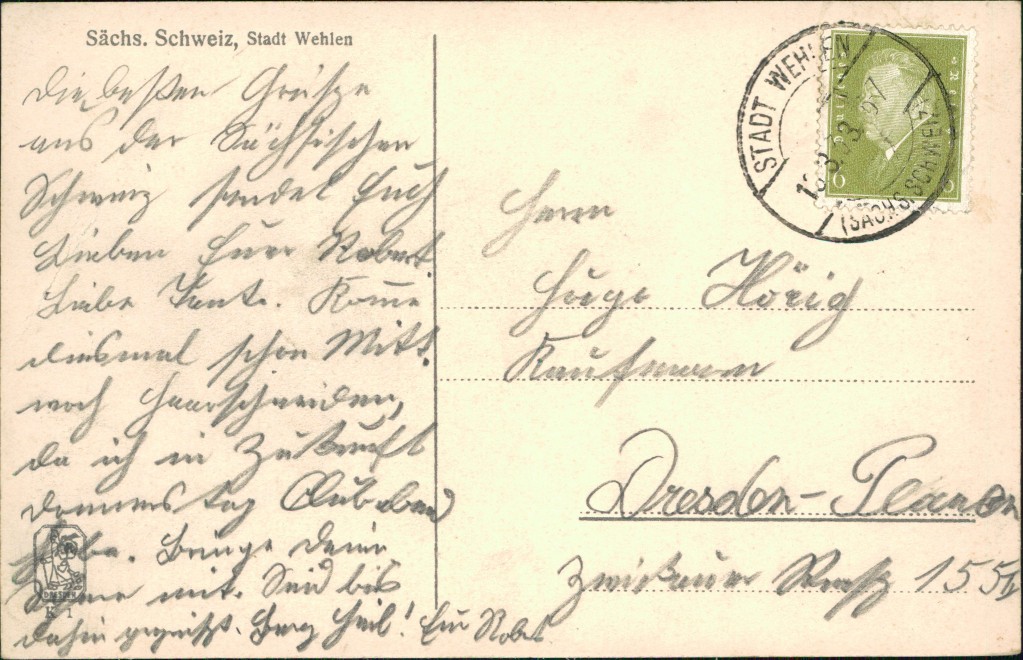 Sächs. Schweiz, Stadt Wehlen
Die besten Grüße
aus der Sächsischen
Schweiz sendet Euch
Lieben Euer Robert
Liebe Tante. Komme
diesmal schon Mitt-
woch Haarschneiden,
da ich in Zukunft
Donnerstag Clubabend
habe. Bringe Deine
mit. Seid bis
dahin gegrüßt. Berg Heil! Eur Robert
DRESDEN
STADT WEHLEN
(SÄCHS. SCHWEIZ)
Herrn
Hugo Hörig
Kaufmann
Dresden-Plauen
Zwickauer Straße 155